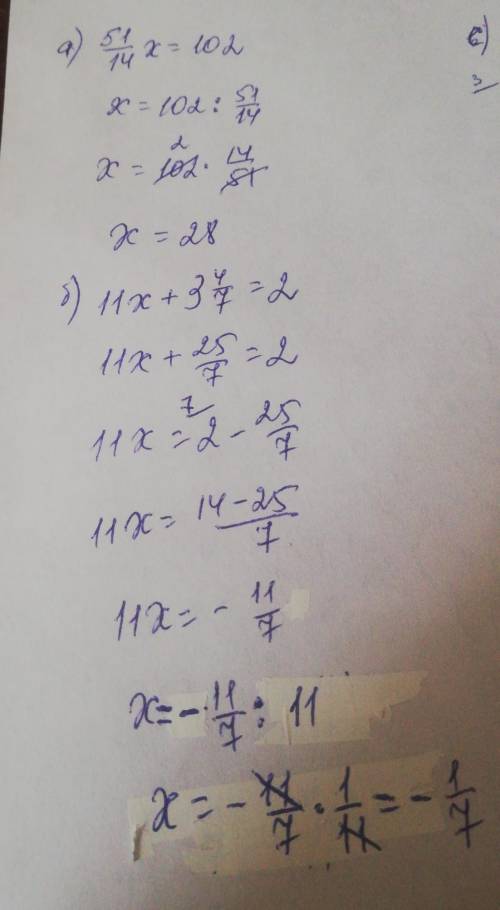 а) 51/14 x = 102
x = 102 : 51/14
x = 102 2 · 14/51
x = 28
б) 11x + 3 4/7 = 2
11x + 25/7 = 2
11x = 2 7 - 25/7
11x = 14 - 25/7
11x = - 11/7
x = - 11/7 : 11
x = - 11/7 · 1/11 = - 1/7